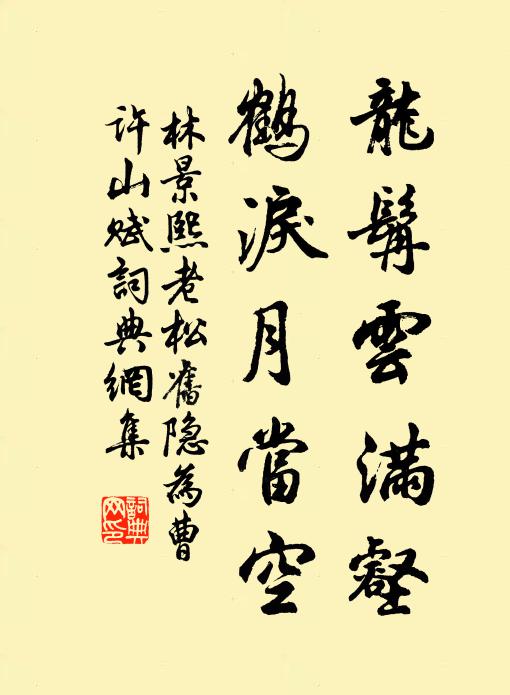 龍髯雲滿壑
鶴淚月當空
林景熙老松舊隐為曹
許山賦詞典網集
詞典
网印